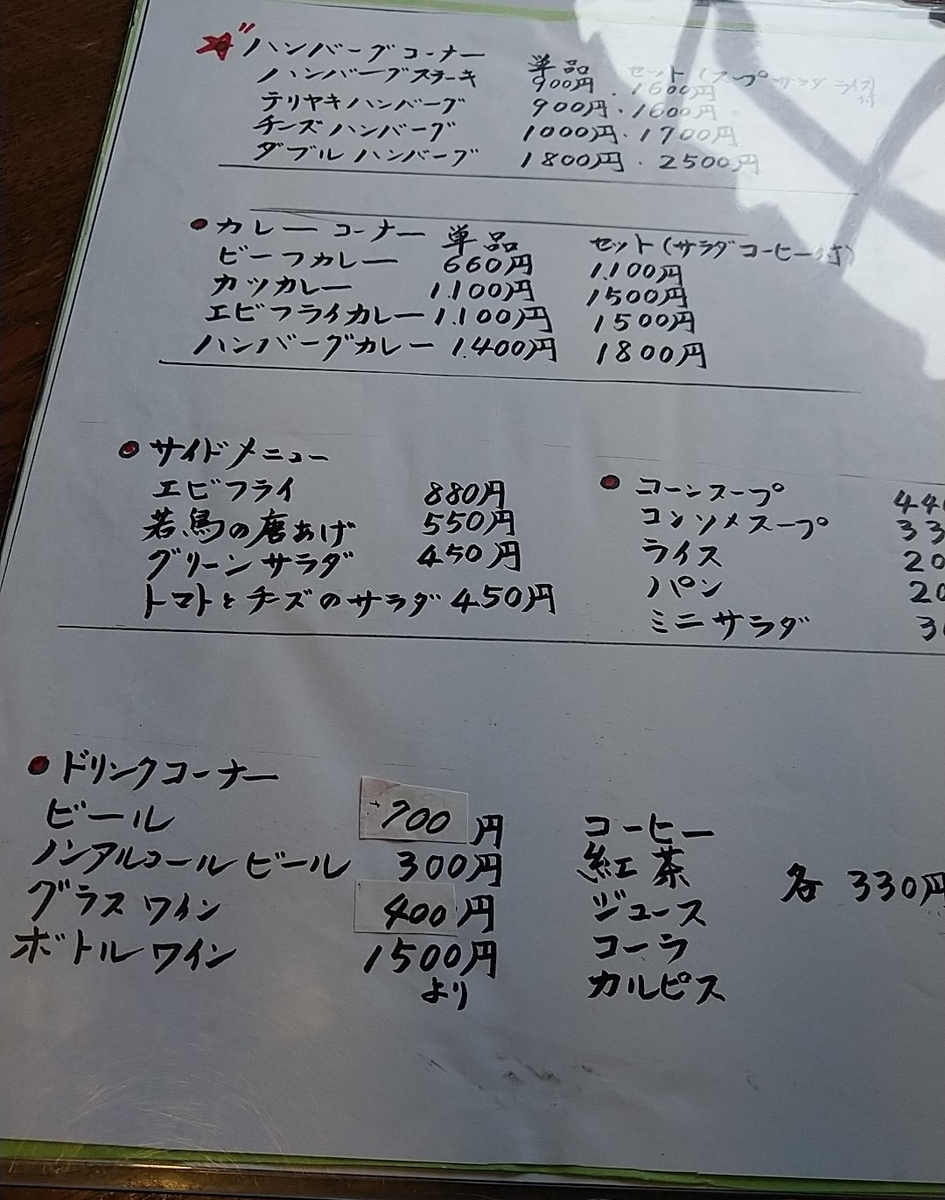 ハンバーグコーナー 単品 セット(スープ サラダ ライス付
ハンバーグステーキ 900円・1600円
テリヤキハンバーグ 900円・1600円
チーズハンバーグ 1000円・1700円
ダブルハンバーグ 1800円・2500円
カレーコーナー 単品 セット(サラダコーヒー付)
ビーフカレー 660円 1.100円
カツカレー 1.100円 1500円
エビフライカレー 1.100円 1500円
ハンバーグカレー 1.400円 1800円
サイドメニュー
エビフライ 880円
若鳥の唐あげ 550円
グリーンサラダ 450円
トマトとチーズのサラダ 450円
コーンスープ 44
コンソメスープ 33
ライス 20
パン 20
ミニサラダ 3
ドリンクコーナー
ビール 700円
ノンアルコールビール 300円
グラスワイン 400円
ボトルワイン 1500円
より
コーヒー
紅茶
ジュース 各 330円
コーラ
カルピス